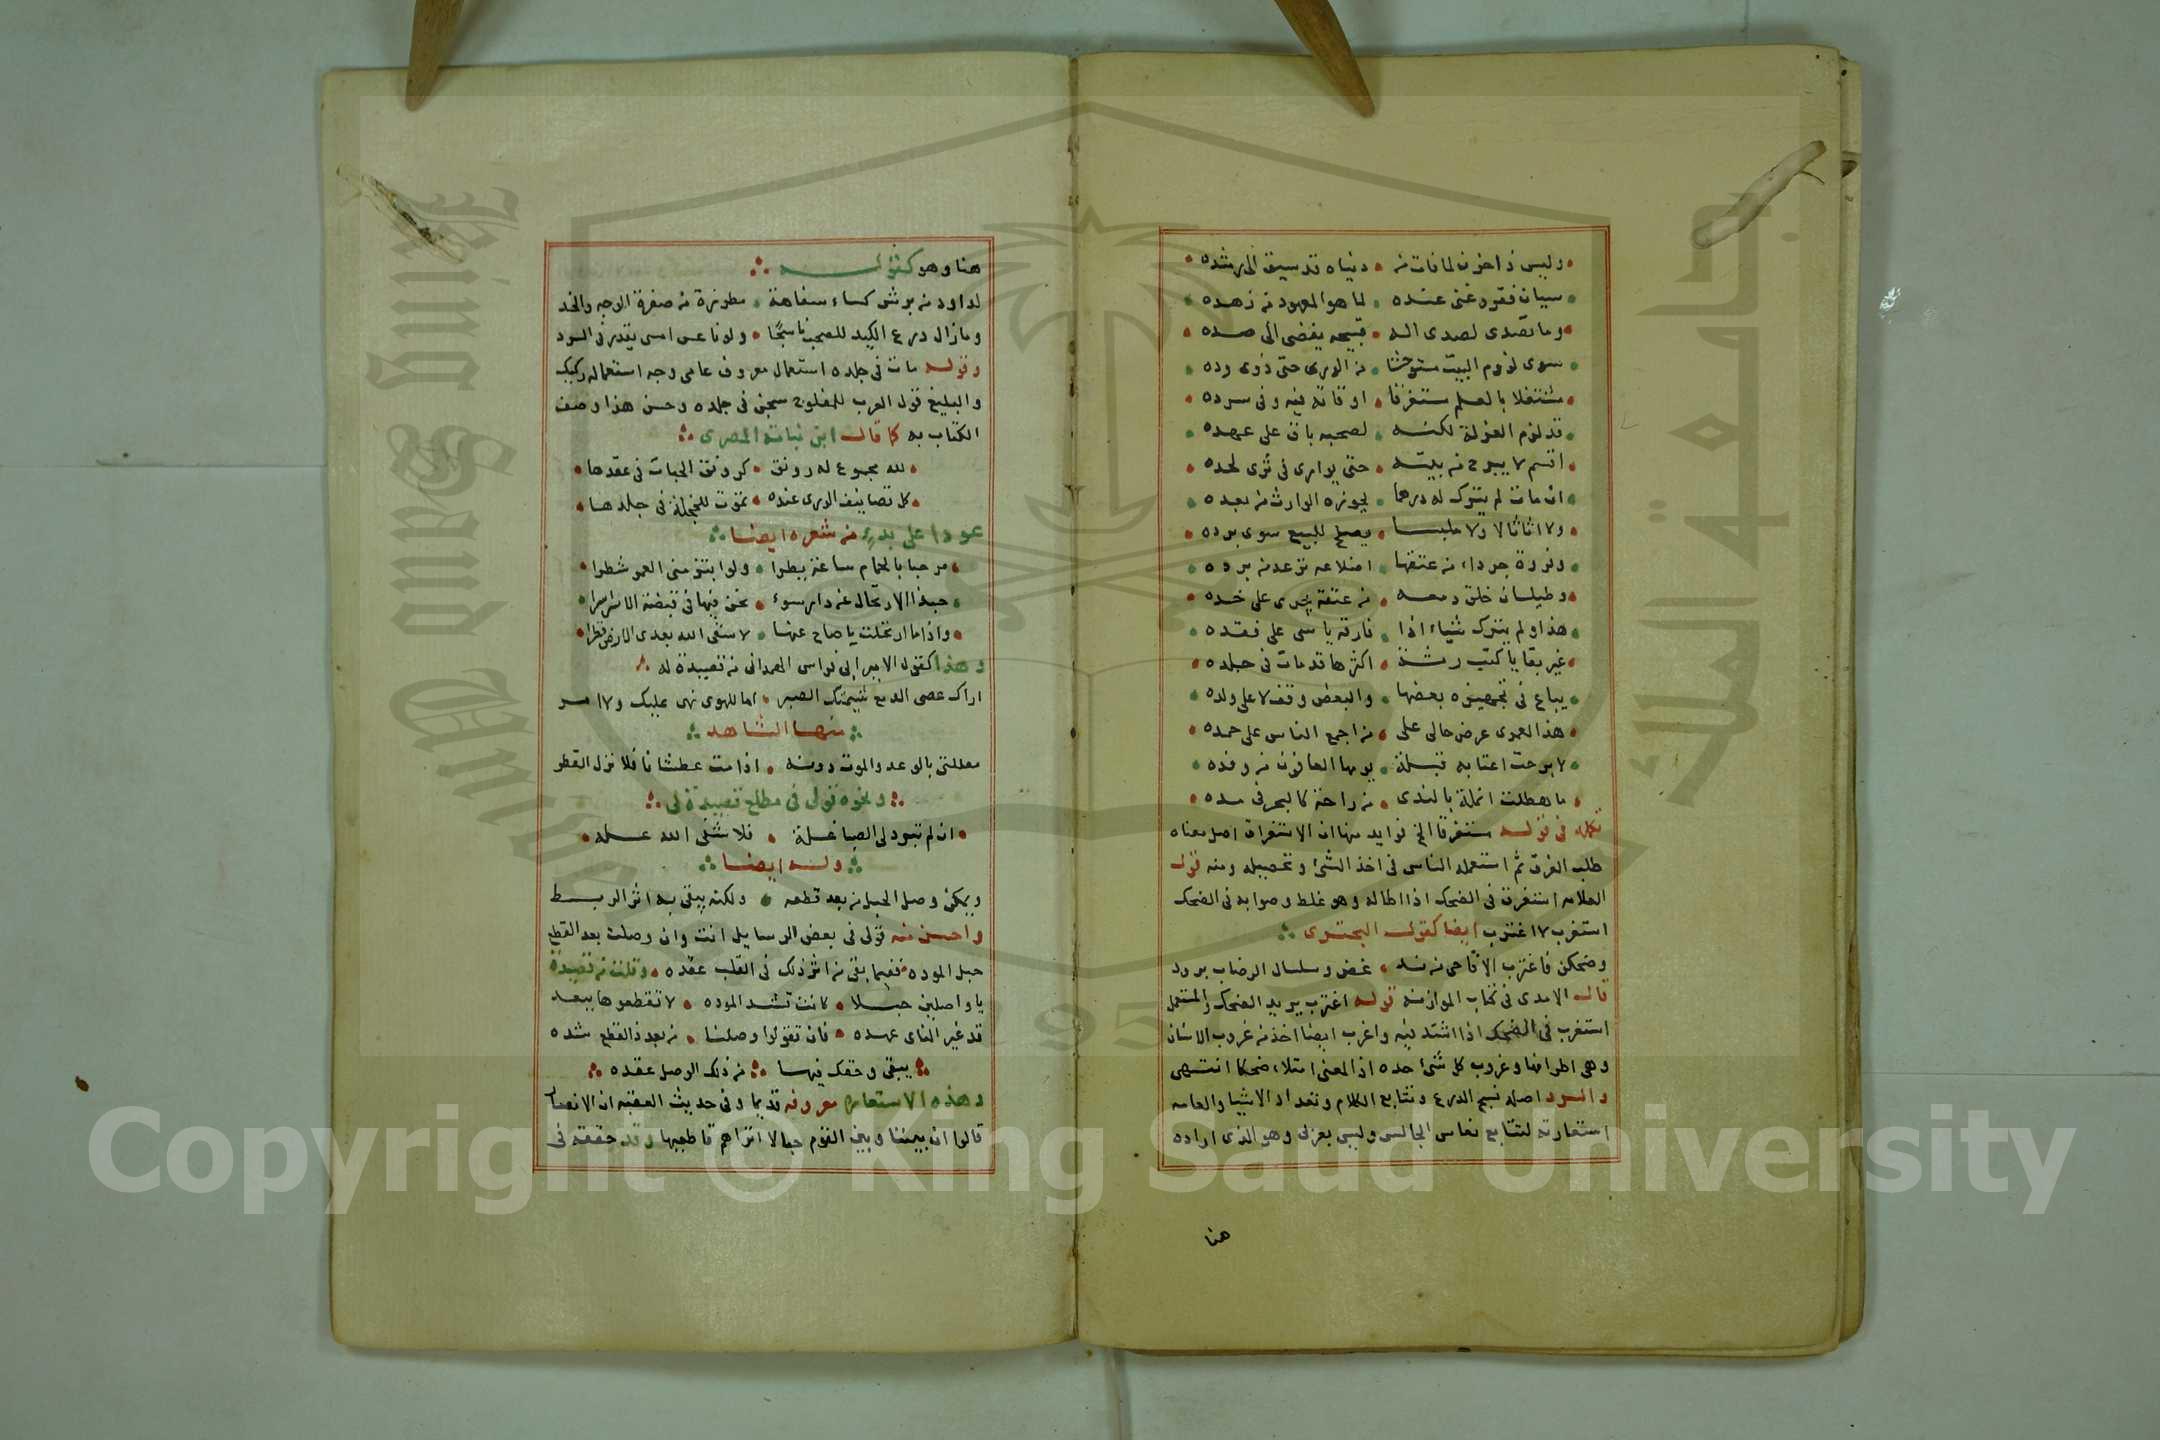 وليس ذا حزن لما فات من • دنياه قد سيق الى رشده
سيان فقر وغنى عنده • لما هو المعهود من زهده
وما تصدى لصدى اله • قبيحه يفضى الى صده
سوى لزوم البيت مستوحشا • من الورى حتى ذوى وده
مشتغلا بالعلم مستغرقا • اوقاته فيه وفى سرده
قد لزم العزلة لكنه • لصحبه باق على عهده
اقسم لا يبرح من بيته • حتى يوارى فى ثرى لحده
ان مات لم يترك له درهما • يحوزه الوارث من بعده
ولا اثاثا لا ولا ملبسا • يصلح للبيع سوى برده
وفروة جرداء من عتقها • اضلاعه ترعد من برده
وطيلسان خلق دمعه • من عتقه يجرى على خده
هذا ولم يترك شياء اذا • فارقه ياسى على فقده
غير بقايا كتب رثة • اكثرها قد مات فى جلده
يباع فى تجهيزه بعضها • والبعض وقف لا على ولده
هذا لعمرى عرض حالى على • من اجمع الناس على حمده
لا برحت اعتابه قبلة • يومها العافون من وفده
ما هطلت انملة بالندى • من راحة كالبحر فى مده
تكملة فى قوله مستغرقا الخ فوايد منها ان الاستغراق اصل معناه
طلب الغرق ثم استعمله الناس فى اخذ الشئ وتحصيله ومنه قول
العلامه استغرق فى الضحك اذا اطاله وهو غلط وصوابه فى الضحك
استغرب لا اغترب ايضا كقول البحترى
وضحكن فاغترب الاقاحى من ند • غض وسلسال الرضاب برود
قال الامدى فى كتاب الموازنه قوله اغترب يريد الضحك والمستعمل
استغرب فى الضحك اذا اشتد فيه واغرب ايضا اخذ من غروب الاسنان
وهى اطرافها وغروب كل شئ حده اذ المعنى امتلاء ضحكا انتهى
والسرد اصله نسج الدرع وتتابع الكلام وتعداد الاشيا والعامه
استعارته لتتابع نعاس الجالس وليس بعربى وهو الذى اراده
هنا
هنا وهو كقوله
لداود من برش كساء سفاهة • مطرزة من صفرة الوجه والخد
وما زال درع الكيد للصحب ناسجا • ولو ناعس امسى يقدر فى السرد
وقوله مات فى جلده استعمال معروف عامى وجه استعماله ركيك
والبليغ قول العرب للمغلوب سجن فى جلده وحسن هذا وصف
الكتاب به كما قال ابن نباته المصرى
لله مجموع له رونق • كرونق الحبات فى عقدها
كل تصانيف الورى عنده • تموت للخجلة فى جلدها
عودا على بدء من شعره ايضا
مرحبا بالحمام ساعة يطرا • ولو ابتز منى العمر شطرا
حبذا الارتحال عن دار سوء • نحن فيها فى قبضة الاسر اسرا
واذا ما ارتحلت يا صاح عنها • لا سقى الله بعدى الارض قطرا
وهذا كقول الامير ابى فراس الحمدانى من قصيدة له
اراك عصى الدمع شيمتك الصبر • اما للهوى نهى عليك ولا امر
منها الشاهد
معللتى بالوعد والموت دونه • اذا مت عطشانا فلا نزل القطر
ونحوه قولى فى مطلع قصيدة لى
ان لم تبرد لى الصبا غلة • فلا شفى الله عله
وله ايضا
ويمكن وصل الحبل من بعد قطعه • ولكنه يبقى به اثر الربط
واحسن منه قولى فى بعض الرسايل انت وان وصلت بعد القطع
حبل الموده فبما بقى من اثر ذلك فى القلب عقده • وقلت من قصيدة
يا واصلين حبلا • كانت تشد الموده • لا تقطعوها ببعد
قد غير الناى عهده • فان تقولوا وصلنا • من بعد ذا القطع شده
يبقى وحقك فيها • من ذلك الوصل عقده
وهذه الاستعاره معروفه قديما وفى حديث العقبه ان الانصار
قالوا ان بيننا وبين القوم حبالا انزاهم قاطعيها وقد حققته فى
Copyright © King Saud University